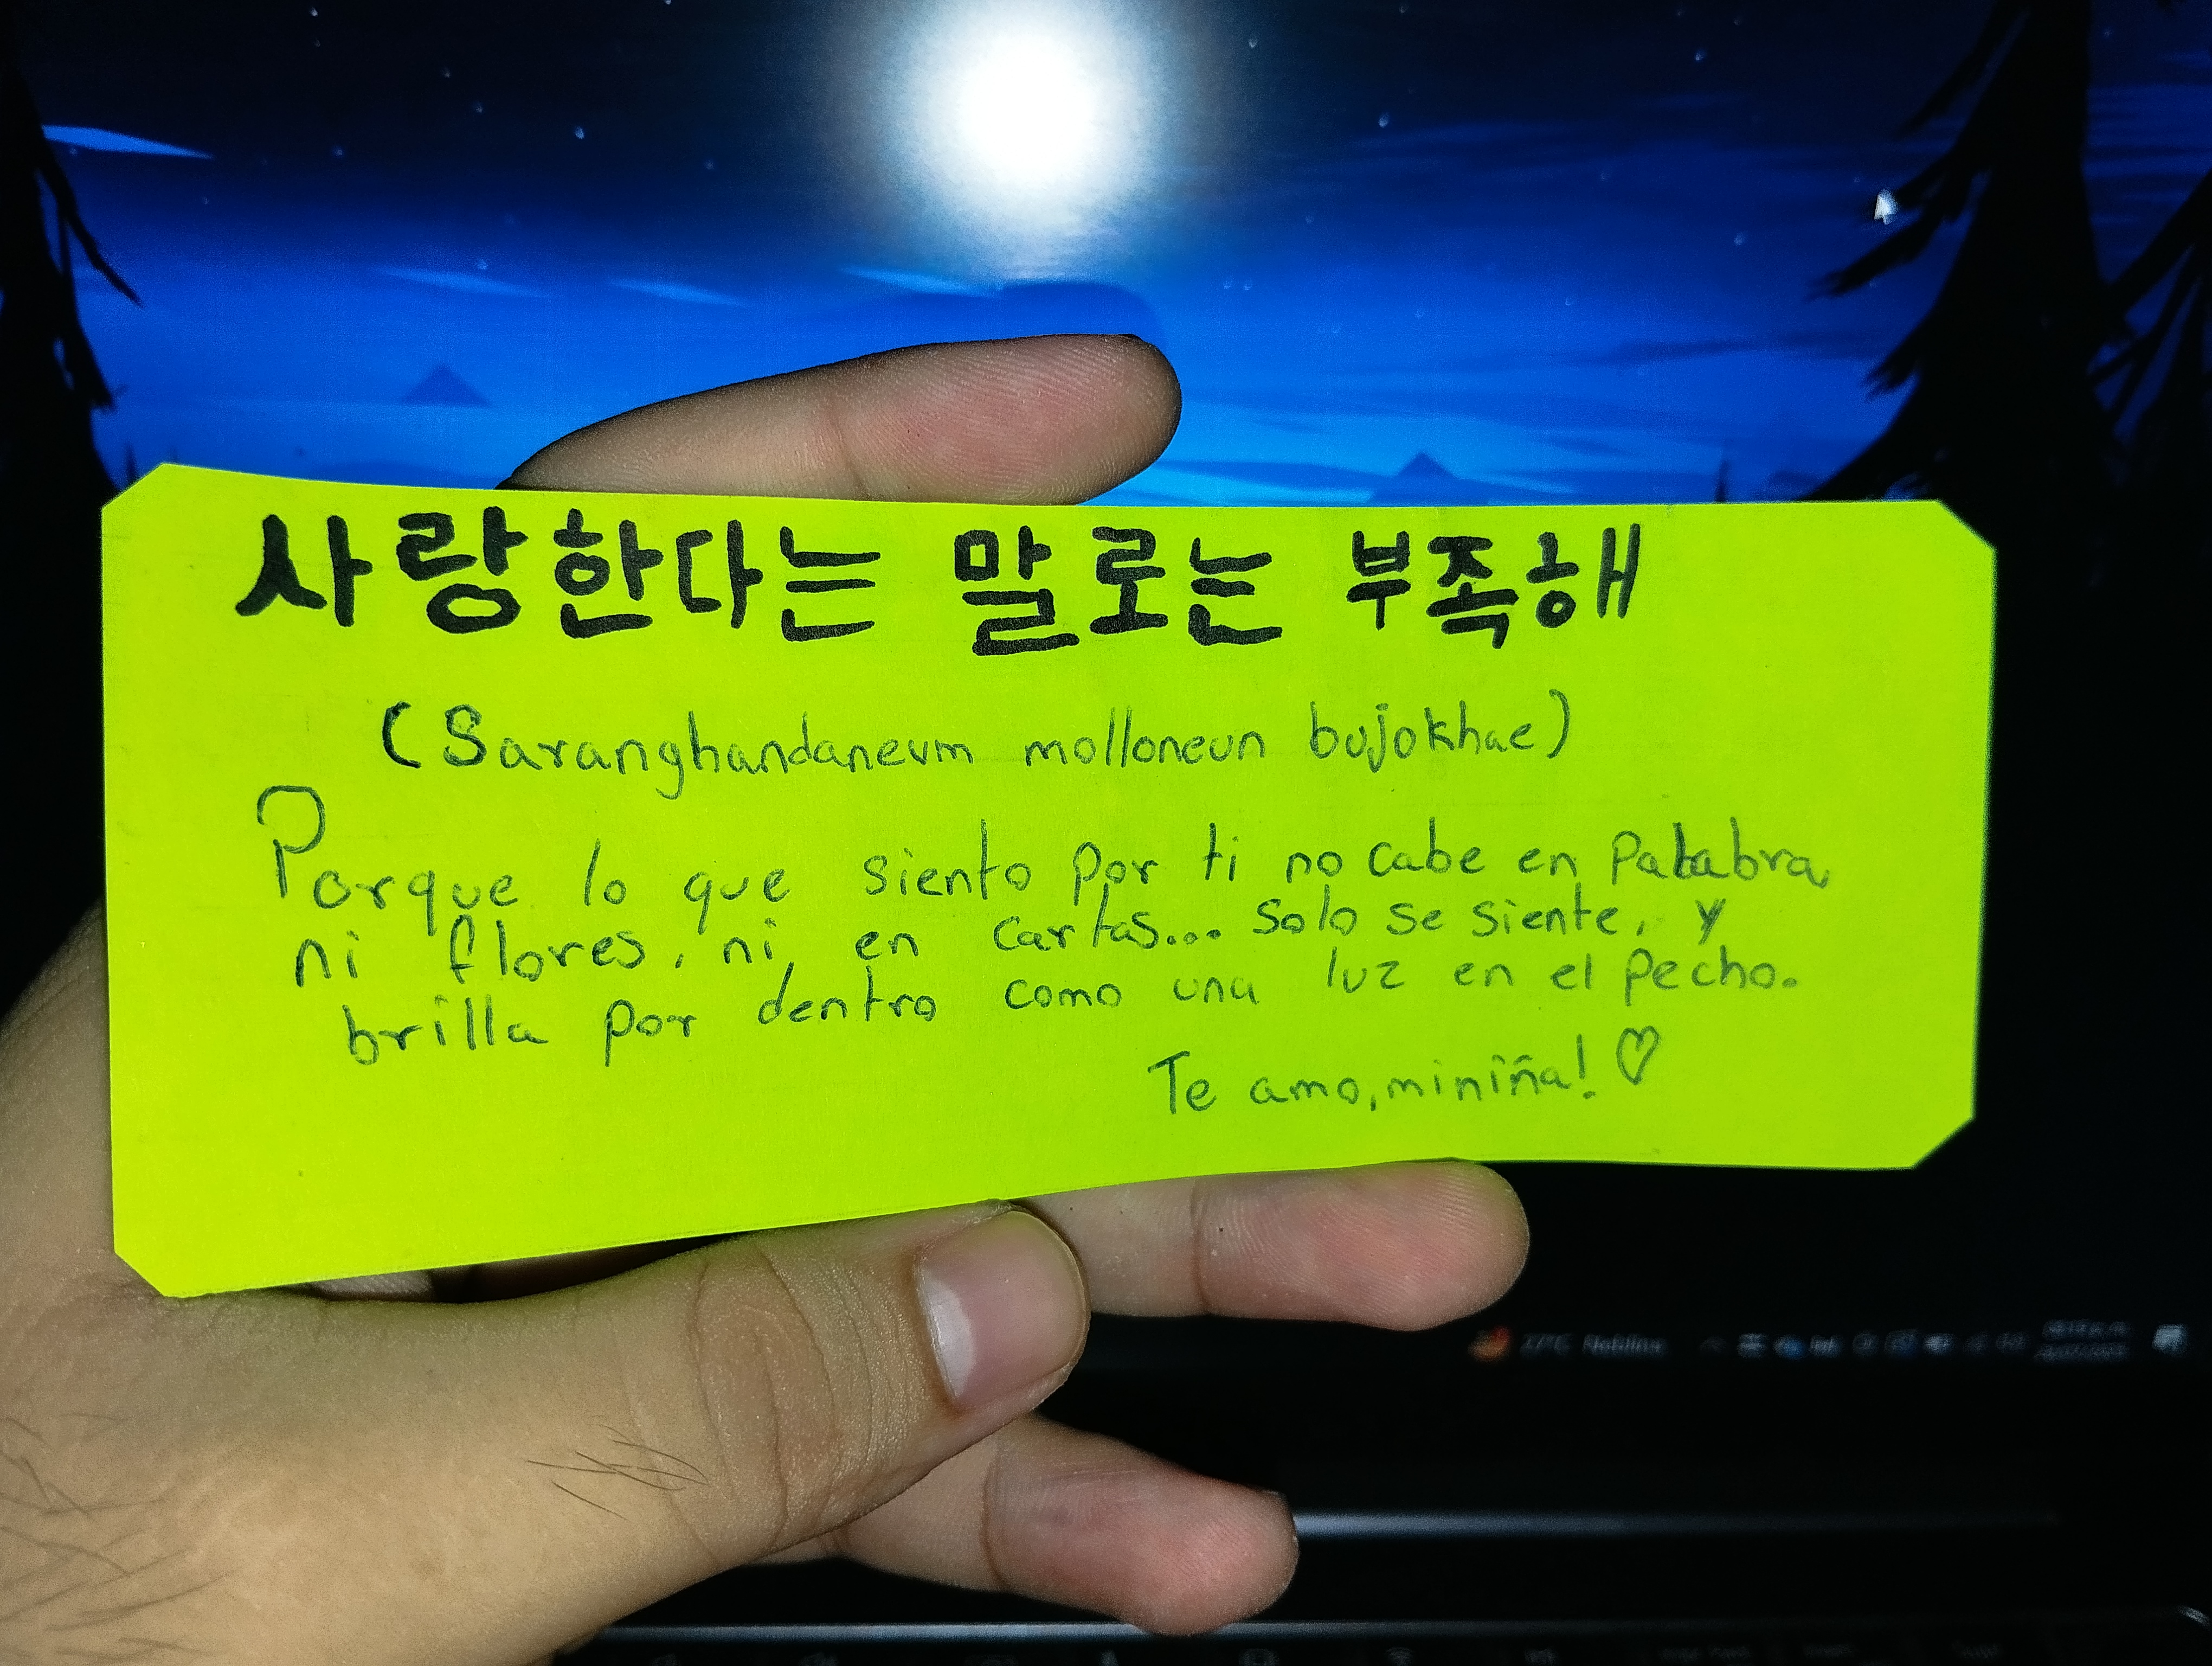 사랑한다는 말로는 부족해
(Saranghandaneum molloneun bujokhae)
Porque lo que siento por ti no cabe en Palabra,
ni flores, ni en cartas... solo se siente, y
brilla por dentro como una luz en el pecho.
Te amo, miniña! ♡
22°C Neblina